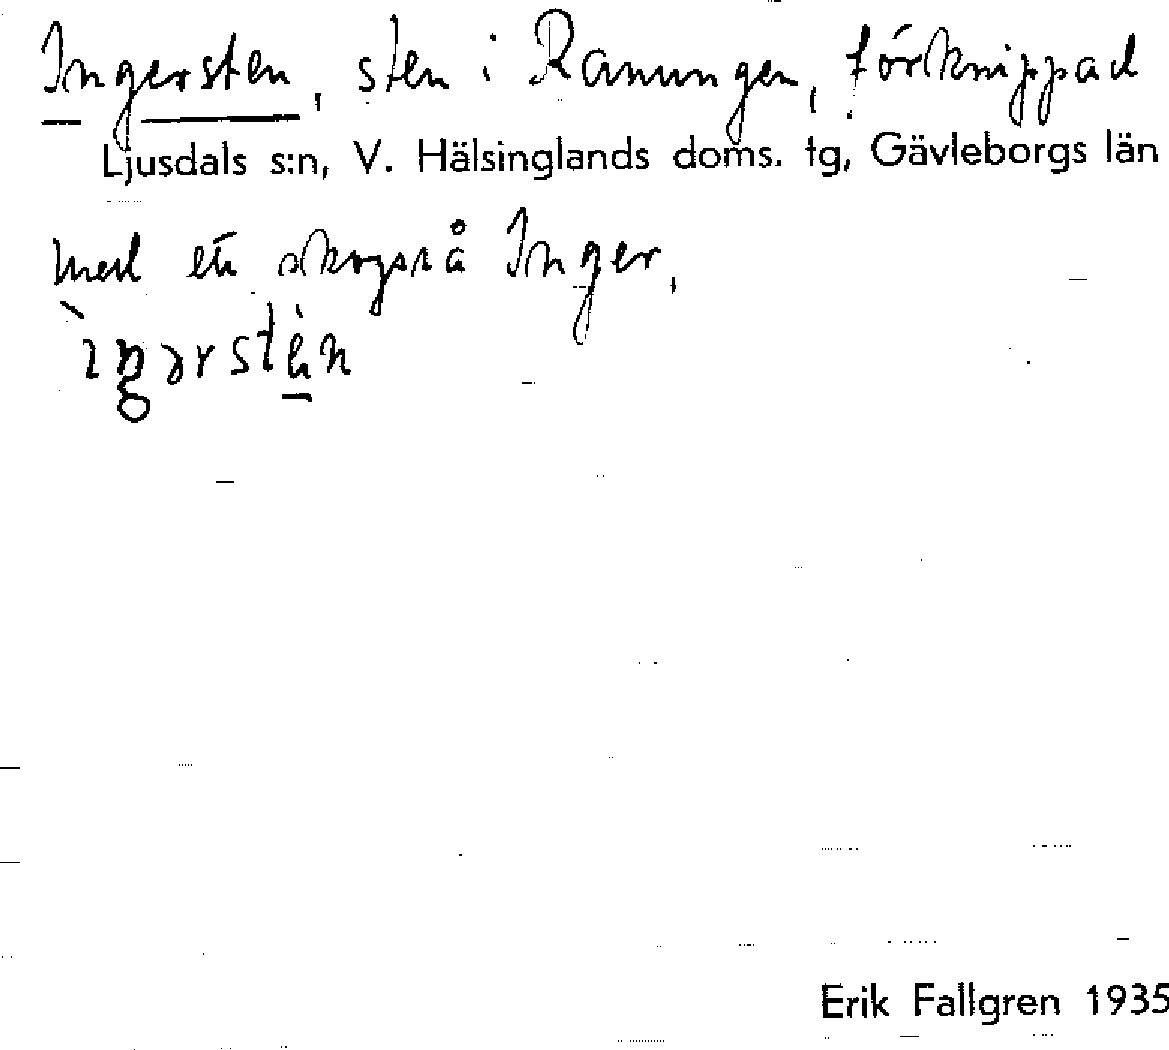 Ingersten, sten i Ramungen, förknippad
Ljusdals s:n, V. Hälsinglands doms. tg, Gävleborgs län
med ett skogsrå Inger.
Erik Fallgren 1935